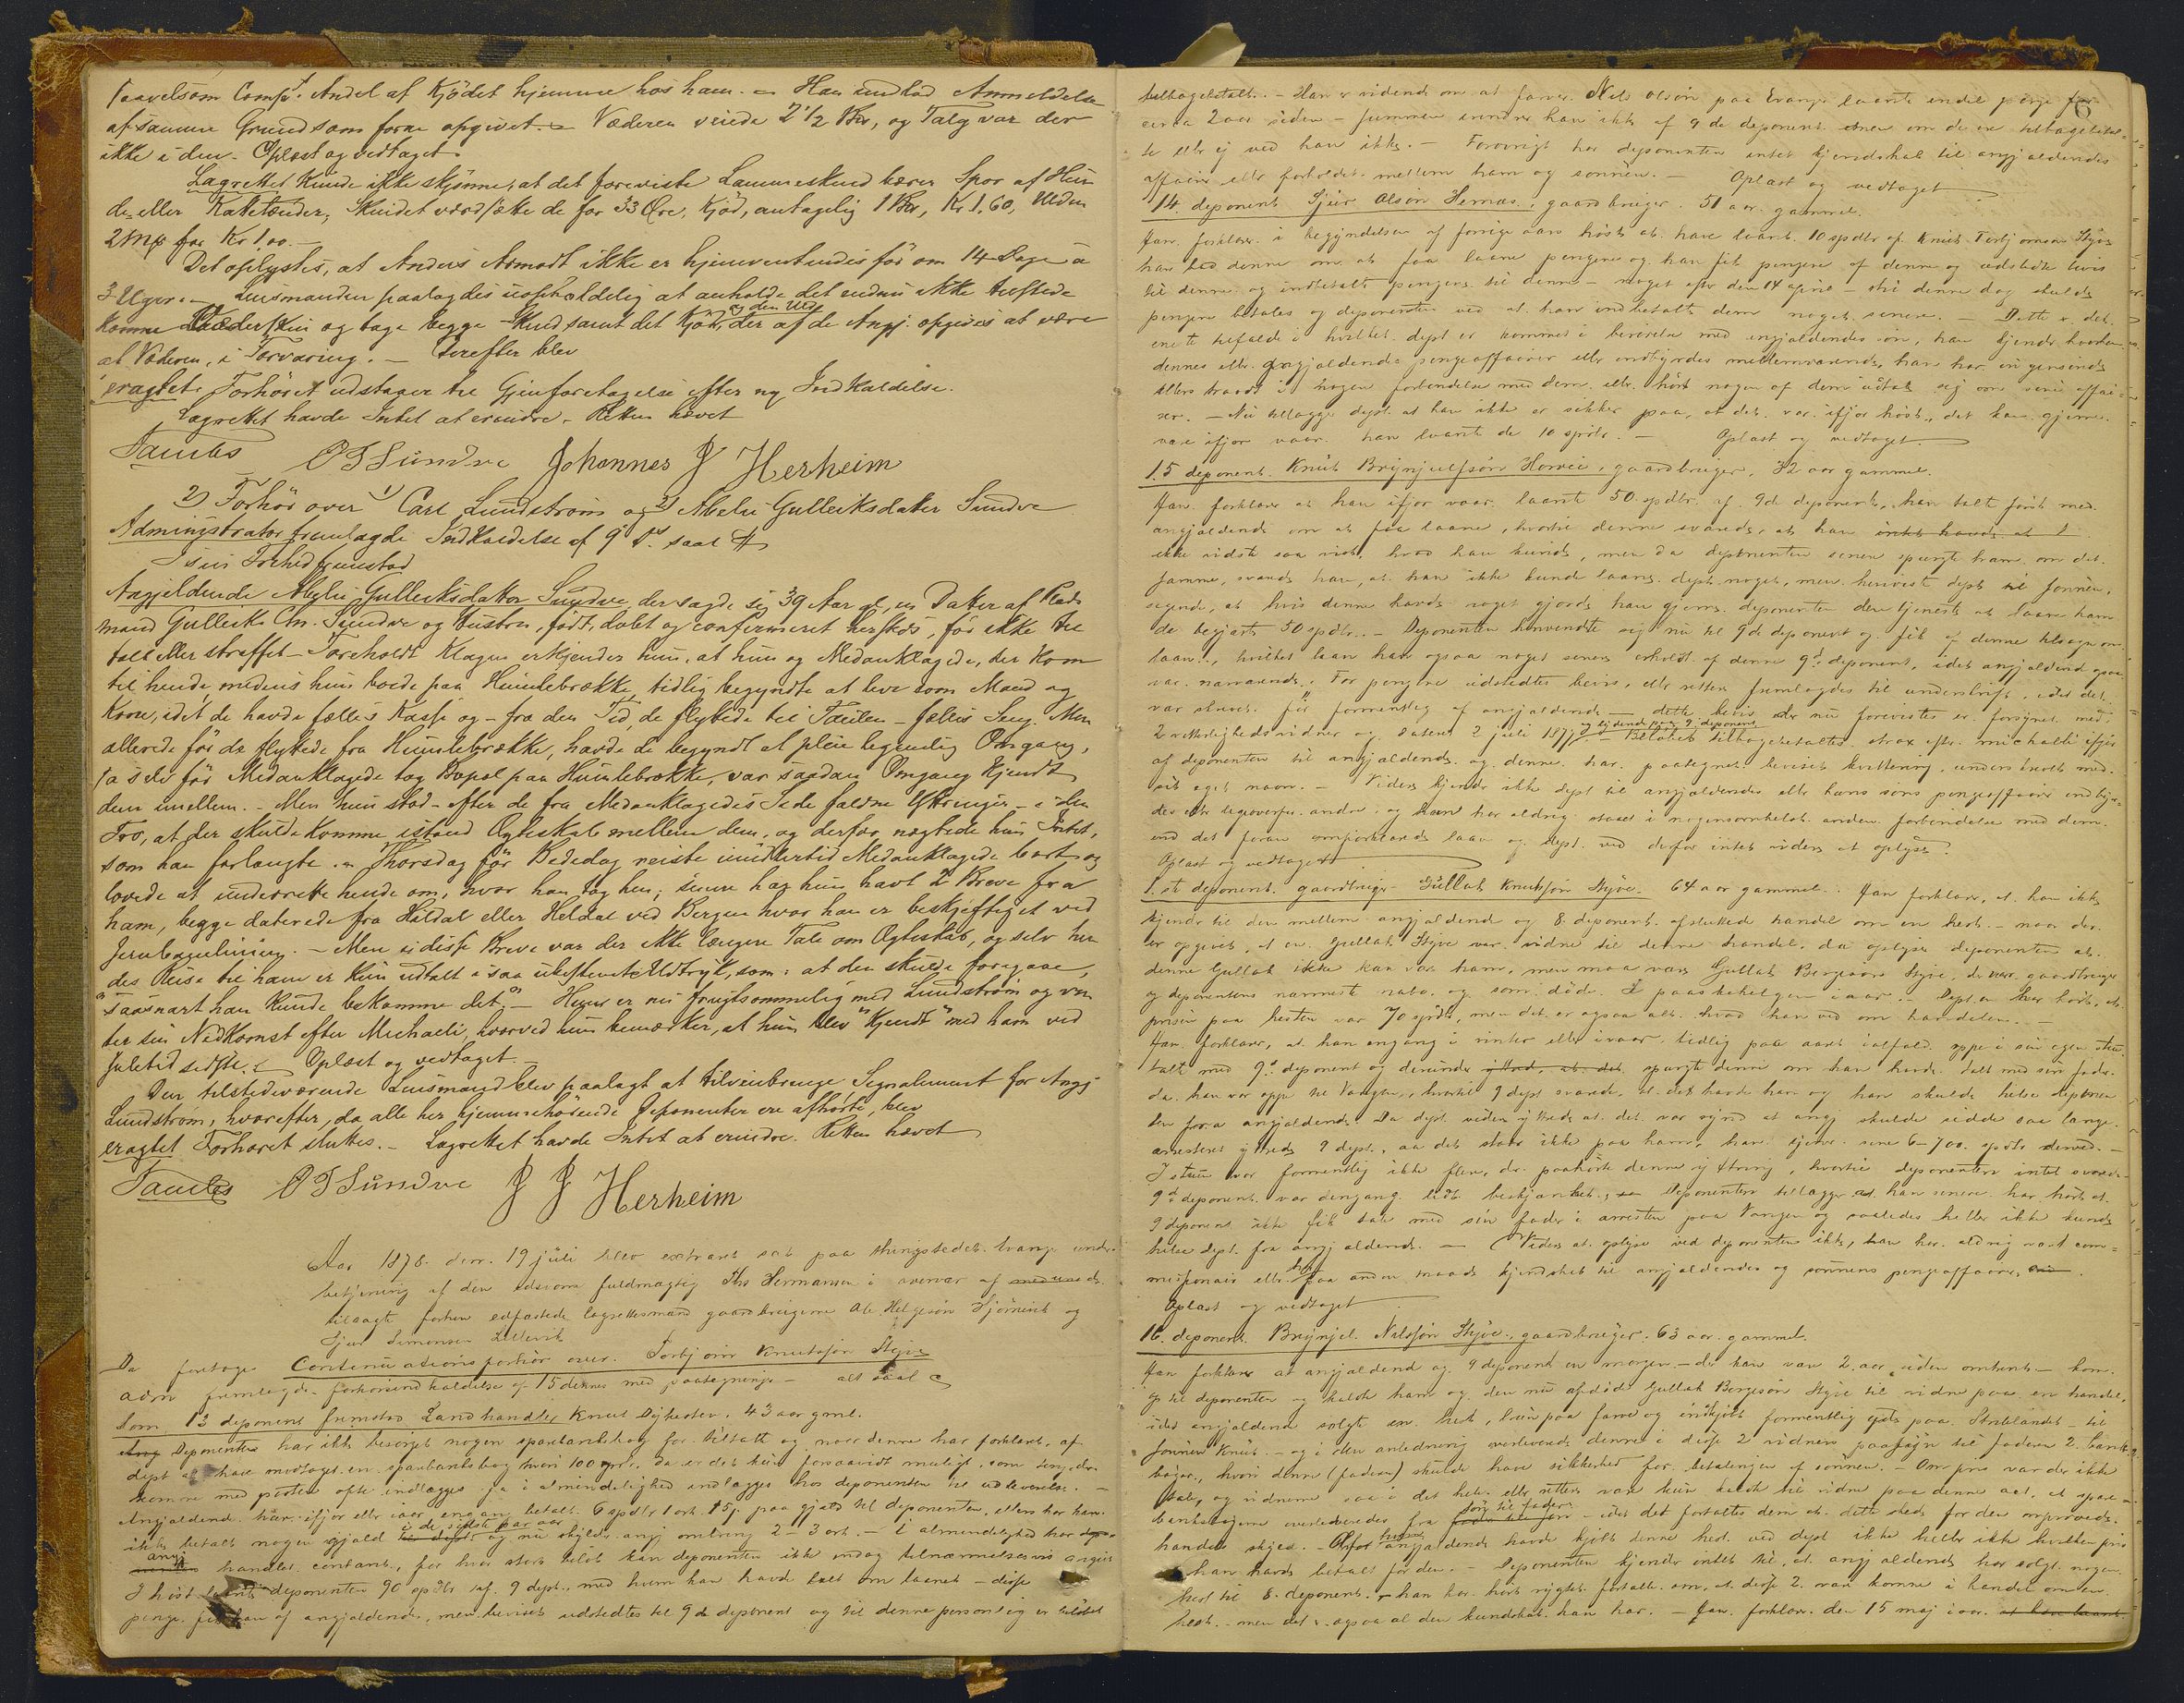 saavelsom Comps. Andel af Kjödet hjemme hos ham. – Han undlod Anmeldelse
af samme Grund som foran opgivet. – Væderen veiede 2 1/2 Bw, og Talg var der
ikke i den. Oplæst og vedtaget.
Lagrettet kunde ikke skjønne, at det foreviste Lammeskind bærer Spor af Hun
de- eller Kattetænder; Skindet værdsætte de for 33 Øre, Kjød, antagelig 1 Kr 1,60, Ulden
2 Mk for Kr 1,00. –
Det oplystes, at Anders Armodt ikke er hjemventendes før om 14 Dage à
3 Uger. – Lensmanden paalagdes uopholdelig at anholde det endnu ikke tilstede
komne Væderskin og tage begge Skind samt det Kjød, og den Uld der af de Angj. opgives at være
af Væderen, i Forvaring. – Derefter blev
eragtet: Forhöret udstaaer til Gjenforetagelse efter ny Indkaldelse.
Lagrettet havde Intet at erindre. Retten hævet
OTSundve Johannes J Herheim
2) Forhör over 1) Carl Lundström og 2) Abelu Gulleiksdatter Sundve
Administrator fremlagde Indkaldelse af 9 ds. saal
I sin Frihed fremstod
Angjeldende Abelu Gulleiksdatter Sundve, der sagde sig 39 Aar gl, en Datter af Plads
mand Gulleik Sundve og Hustru, født, døbt og confirmeret herstds, før ikke til
talt eller straffet. Foreholdt Klagen erkjender hun, at hun og Medanklagede, der kom
til hende medens hun boede paa Humlebrække, tidlig begyndte at leve som Mand og
Kone, idet de havde fælles Kasse og – fra den Tid, de flyttede til – fælles Seng. Men
allerede før de flyttede fra Humlebrække, havde de begyndt at pleie legemlig Omgang,
ja selv før Medanklagede tog Bopæl paa Humlebrække, var saadan Omgang Kjendt
dem imellem. – Men hun stod – efter de fra Medanklagedes Side faldne Yttringer – i den
Tro, at der skulde komme istand Ægteskab mellem dem, og derfor nægtede hun Intet,
som han forlangte. – Thorsdag før Bededag reiste imidlertid Medanklagede bort og
lovede at underrette hende om, hvor han tog hen; senere har hun havt 2 Breve fra
ham, begge daterede fra Hildal eller Heldal ved Bergen hvor han er beskjæftiget ved
Jernbanelinien. – Men i disse Breve var der ikke længere Tale om Ægteskab, og selv hen
des Reise til ham er kun udtalt i saa ubestemte Udtryk, som: at den skulde foregaae,
"saasnart han kunde bekomme det". – Hun er nu frugtsommelig med Lundström og ven
ter sin Nedkomst efter Michaeli, hvorved hun bemærker, at hun blev "Kjendt" med ham ved
Juletid sidste. – Oplæst og vedtaget. –
Den tilstedeværende Lensmand blev paalagt at tilveiebringe Signalement for Angj.
Lundström, hvorefter, da alle her hjemmehörende Deponenter ere afhörte, blev
eragtet Forhøret sluttes. – Lagrettet havde Intet at erindre. Retten hævet
OTSundve J J Herheim
Aar 1878. den 19 juli blev extraret sat paa thingstedet Evanger under
betjening af den edsvorne fuldmægtig Hermansen i overvær af
tilsagte forhen edfæstede lagrettesmænd gaardbrugerne Ole Helgesön og
Sjur Simonsen Lillevik
Da foretoges Continuationsforhör over Torbjörn Knutssön Styve
Adm fremlagde forhörsindkaldelse af 15 dennes med paategninger – alt saal
Som 13 deponent fremstod Landhandler Knut Dykesten. 43 aar gml.
Deponenten har ikke besörget nogen sparebankbog for tiltalte og naar denne har forklaret, af
dept at have modtaget en sparebanksbog hvori 100 spd, da er det kun forsaavidt muligt, som
komme med posten ofte indlægges ja i almindelighed indlægges hos deponenten til udleverelse. –
Angjældende har ifjor eller iaar engang betalt 6 spdlr 1 ort 15 s. paa gjæld til deponenten, ellers har han
ikke betalt nogen gjæld i de sidste par aar og nu skylder angj omkring 2–3 ort. – I almindelighed har
angj handlet contant, for hvor stort beløb kan deponenten ikke endog tilnærmelsesvis angive
I höst laante deponenten 90 spdlr af 9 dept., med hvem han havde talt om laanet – disse
penge fik han af angjældende, men beviset udstedtes til 9de deponent og til denne personlig er beløbet
tilbagebetalt. – Han er vidende om at farver Nils Olsön paa Evanger laante endel penge for
circa 2 aar siden – summen erindrer han ikke af 9de deponent men om de ere tilbagebetal-
te eller ej ved han ikke. – Forövrigt har deponenten intet kjendskab til angjældendes
affairer eller forholdet mellem ham og sönnen. – Oplæst og vedtaget
14. deponent Sjur Olsön Hernæs, gaardbruger. 51 aar gammel.
Han forklarer i begyndelsen af forrige aars höst at have laant 10 spdlr af Knut Torbjörnsön Styve
han bad denne om at faa laane pengene og han fik pengene af denne og udstedte bevis
til denne og indbetalte pengene til denne – noget efter den 14 april – thi denne dag skulde
pengene betales og deponenten ved at han indbetalte dem noget senere. – Dette er det
eneste tilfælde i hvilket dept er kommet i berörelse med angjældendes sön, han kjender hverken
dennes eller angjældendes pengeaffairer eller indbyrdes mellemværende, han har
ellers traadt i nogen forbindelse med dem eller hört nogen af dem udtale sig om sine affai-
rer. – Nu tillægger dept at han ikke er sikker paa, at det var ifjor höst, det kan gjerne
være ifjor vaar han laante de 10 spdlr. – Oplæst og vedtaget.
15 deponent Knut Brynjulfsön Horvei, gaardbruger, 32 aar gammel.
Han forklarer at han ifjor vaar laante 50 spdlr af 9de deponent, han talte först med
angjældende om at faa laane, hvortil denne svarede, at han
ikke vidste saa vist, hvad han kunde, men da deponenten senere spurgte ham om det
samme, svarede han, at han ikke kunde laane dept noget, men henviste dept til sönnen,
sigende, at hvis denne havde noget gjorde han gjerne deponenten den tjeneste at laane ham
de begjærte 50 spdlr. – Deponenten henvendte sig nu til 9de deponent og fik af denne tilsagn om
laan, hvilket laan han ogsaa noget senere erholdt af denne 9de deponent, idet angjældende ogsaa
var nærværende. For pengene udstedtes bevis, eller rettere fremlagdes til underskrift, idet det
var skrevet för formentlig af angjældende – dette bevis der nu forevistes er forsynet med
2 vitterlighedsvidner og dateret 2 juli 1877 og lydende paa 9 deponent. – Belöbet tilbagebetaltes strax efter michaeli ifjor
af deponenten til angjældende og denne har paategnet beviset kvittering, underskrevet med
sit eget navn. – Videre kjender ikke dept til angjældendes eller hans söns pengeaffairer indbyr-
des eller ligeoverfor andre og han har aldrig staaet i nogensomhelst anden forbindelse med dem
end det foran omforklarede laan og dept. ved derfor intet videre at oplyse.
Oplæst og vedtaget
1.ste deponent gaardbruger Gullak Knutssön Styve. 64 aar gammel. Han forklarer, at han ikke
kjender til den mellem angjældende og 8. deponent afsluttede handel om en hest – naar der
er opgivet, at en Gullak Styve var vidne til denne handel, da oplyser deponenten at
denne Gullak ikke kan være ham, men maa være Gullak Børgesøn Styve, der var gaardbruger
og deponentens nærmeste nabo og som döde i paaskehelgen iaar. – Dept. har hört, at
prisen paa hesten var 70 spdlr, men det er ogsaa alt hvad han ved om handelen. –
Han forklarer, at han engang i vinter eller ivaar tidlig paa aaret ialfald oppe i sin egen stue
talte med 9de deponent og derunder spurgte denne om han havde talt med sin fader
da han var oppe til Vangen, hvortil 9 dept svarede, at det havde han og han skulde hilse deponen
ten fra angjældende. Da dept. videre yttrede at det var synd at angj skulde sidde saa længe
arresteret yttrede 9 dept., aa det skader ikke paa ham, han tjener sine 6–700 spdlr derved. –
I stuen var formentlig ikke flere, der paahörte denne yttring, hvortil deponenten intet svarede.
9de deponent var dengang lidt beskjænket. Deponenten tillægger at han senere har hört at
9 deponent ikke fik tale med sin fader i arresten paa Vangen og saaledes heller ikke kunde
hilse dept. fra angjældende. – Videre at oplyse ved deponenten ikke, han har aldrig været com-
misjonair eller har paa anden maade kjendskab til angjældendes og sönnens pengeaffairer.
Oplæst og vedtaget
16. deponent Brynjel Nilssön Styve, gaardbruger. 63 aar gammel.
Han forklarer at angjældende og 9 deponent en morgen – der kan være 2 aar siden omtrent – kom
op til deponenten og kaldte ham og den nu afdöde Gullak Børgesøn Styve til vidne paa en handel,
idet angjældende solgte en hest, paa farve og indkjöbt formentlig paa Strilelandet – til
sönnen Knut – og i den anledning overleverede denne i disse 2 vidners paasyn til faderen 2 bank-
böger, hvori denne (faderen) skulde have sikkerhed for betalingen af sönnen. – Om pris var der ikke
tale, og vidnerne saa i det hele eller rettere var kun kaldt til vidne paa denne act, at spare-
banksbögerne overleveredes fra sön til fader – idet det fortaltes dem at dette skede for den omprovede
handels skyld. – Af hvem angjældende havde kjöbt denne hest ved dept ikke heller ikke hvilken pris
han havde betalt for den. – Deponenten kjender intet til, at angjældende har solgt nogen
hest til 8. deponent – han har hört rygtet fortælle om, at disse 2 var komne i handel om en
hest – men det er ogsaa al den kundskab han har. – Han forklarer den 15 maj iaar